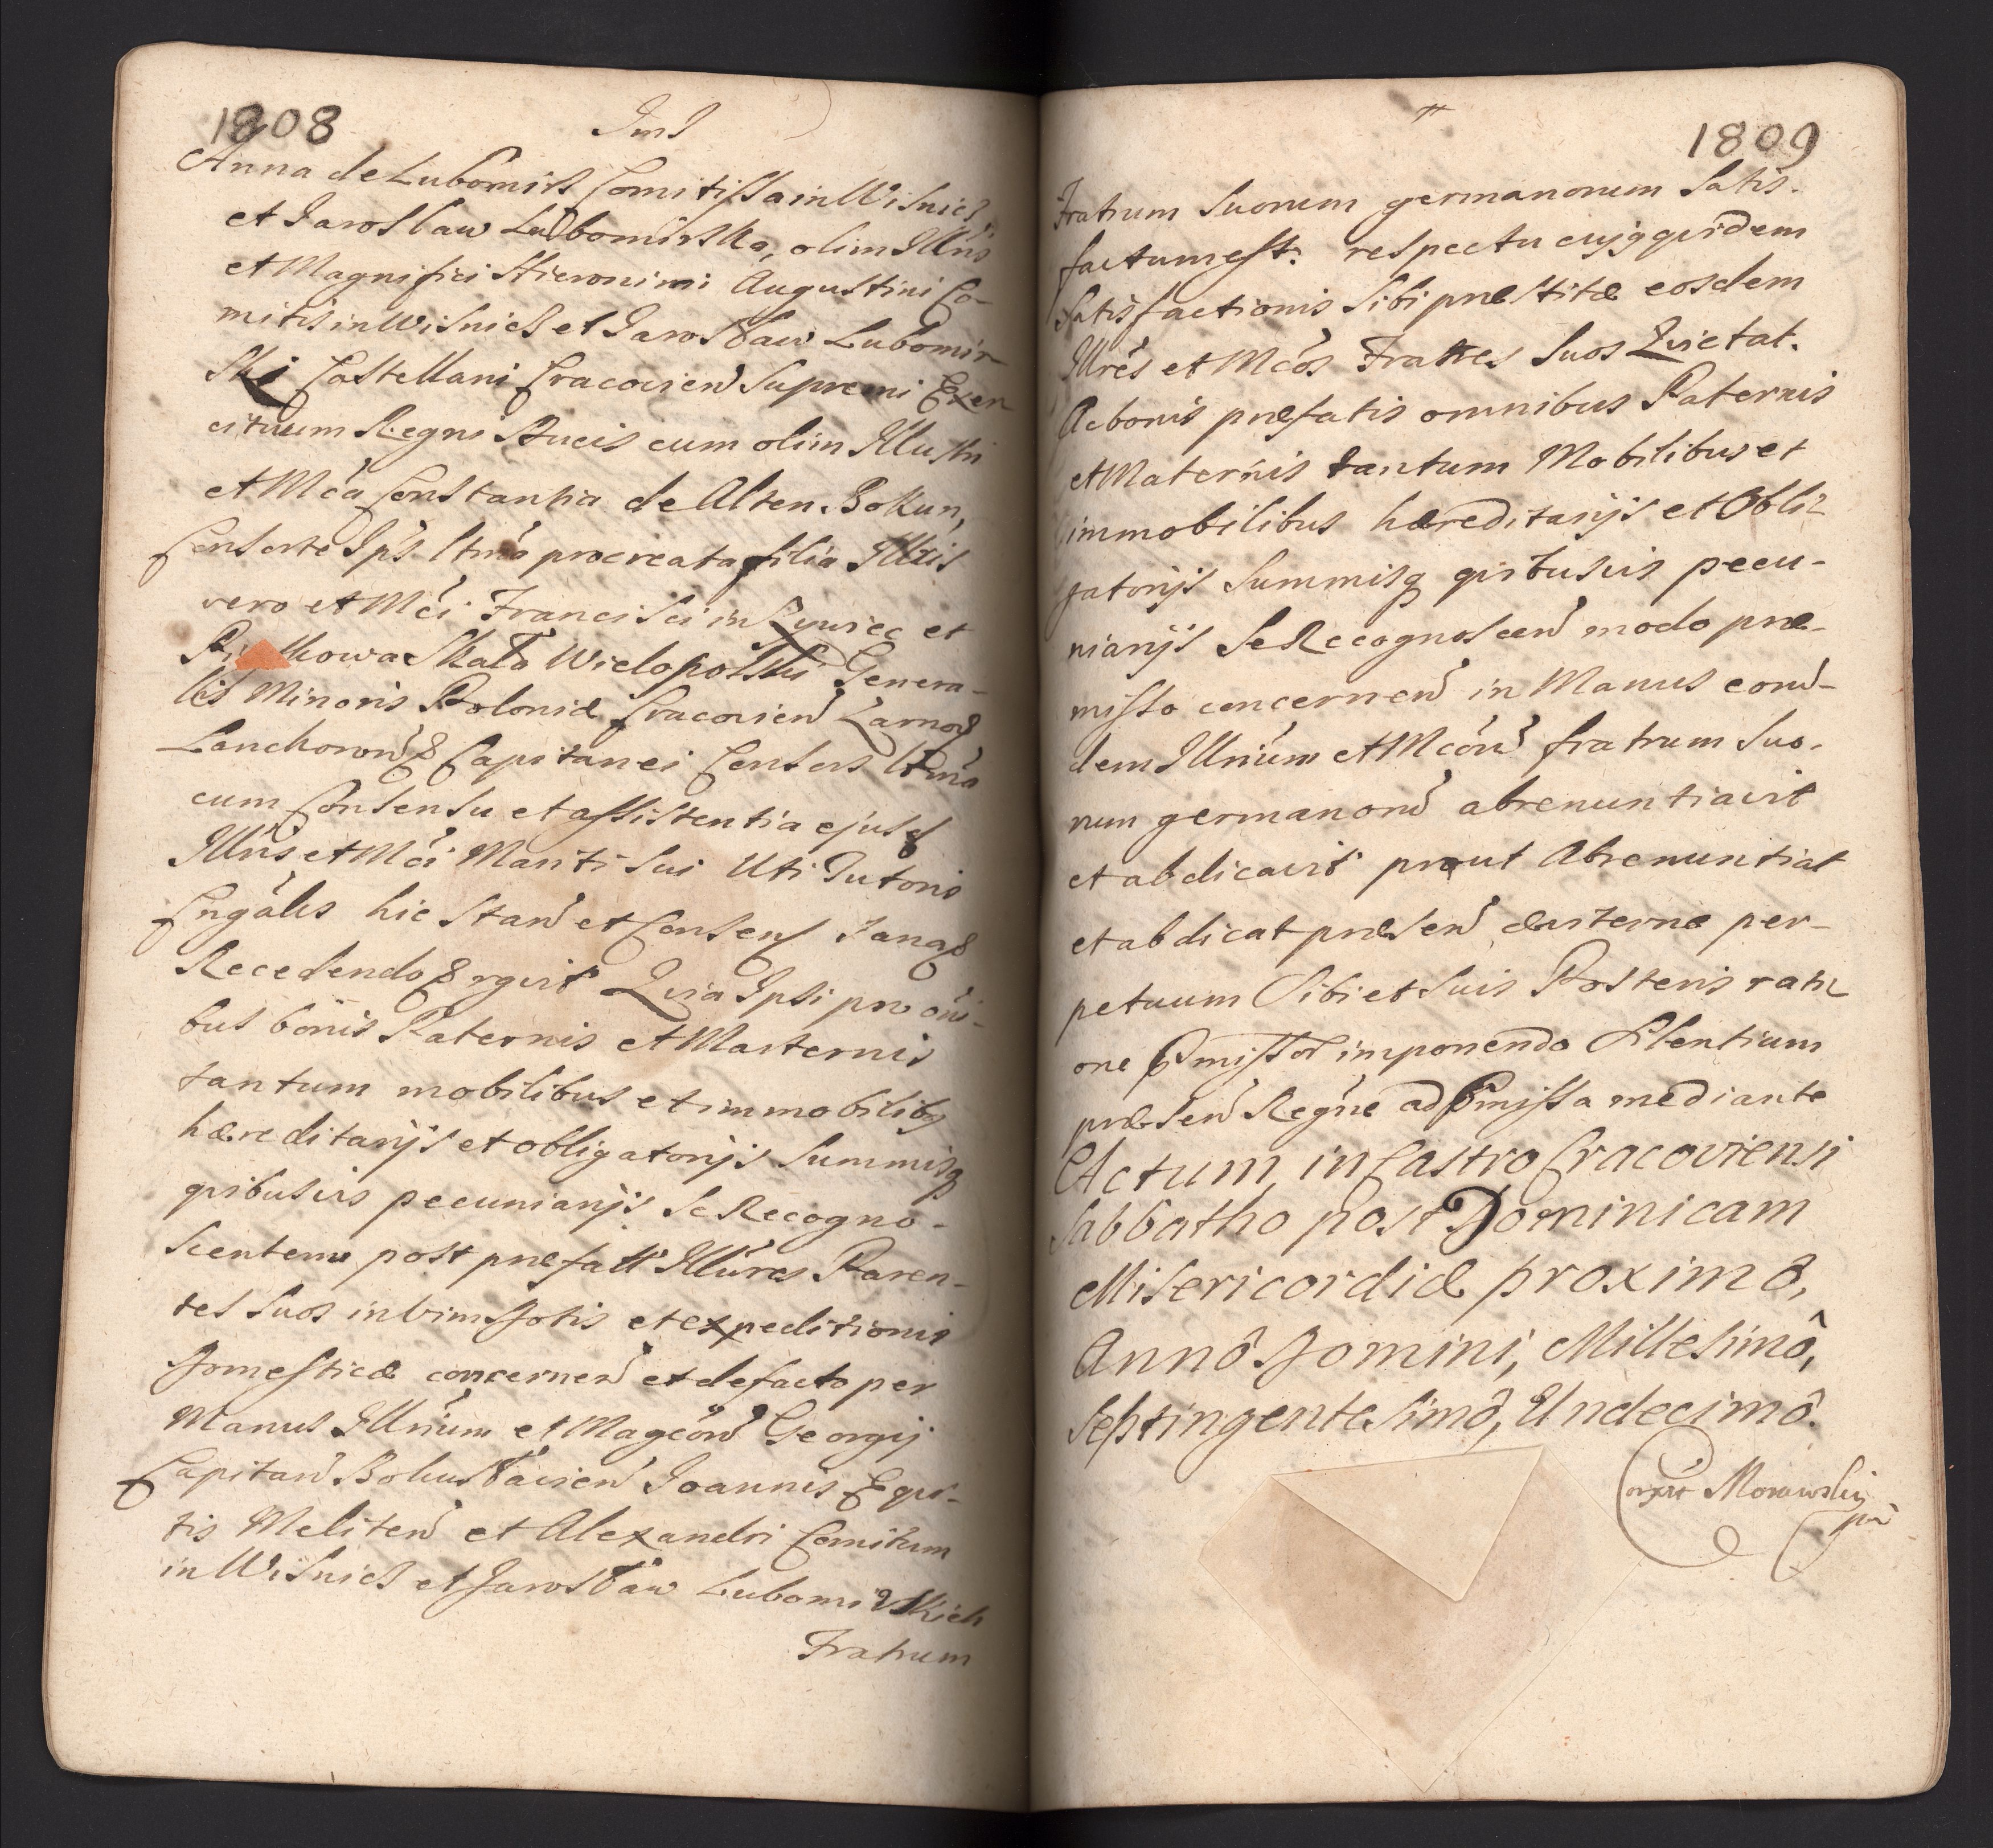 1808
Anna de Lubomirz Comitissa in Wisnicz,
et Jaroslaw Lubomirska, olim Illris
et Magnifici Hieronimi Augustini Co-
mitis in Wisnicz et Jaroslaw Lubomir-
ski Castellani Cracovien Supremi Exer
cituum Regni Ducis cum olim Illustri
et Mca Constantia de Alten Bokun,
Consorte Ips ltma procreata filia Illris
vero et Mci Francisci in Zywiec et
Wielopolski Genera-
lis Minoris Poloniæ Cracovien Zarnog
Lanckoron & Capitanei Consors ltma
cum Consensu et assistentia ejusd
Illris et Mci Mariti Sui Uti Tutoris
Cngalis hic Stan et Consens Janag
Recedendo & rgvit Quia Ipsi pro oni-
bus bonis Paternis et Maternis
tantum mobilibus et immobilibg
hæreditarijs et obligatorijs Summisq
qvibusvis pecuniarijs Se Recogno-
Scentem post præfatt Illres Paren-
tes Suos in vim Dotis et expeditionis
Domesticæ concernen et de facto per
Manus Illrium et Magcorn Georgij
Capitan Bohuslavien Joannis Eqvi-
tis Meliten et Alexandri Comitum
in Wisnicz et Jaroslaw Lubomirskich
Fratrum
1809
Fratrum Suorum germanorum Satis-
factum est: respectu cujg qvidem
Satisfactionis Sibi præstitæ eosdem
Illres et Mcos Fratres Suos Qvietat.
Ac bonis præfatis omnibus Paternis
et Maternis tantum Mobilibus et
immobilibus hæreditarijs et Obli-
gatorijs Summisq qvibusvis pecu-
niarijs Se Recognoscen modo præ-
misso concernen in Manus eorun-
dem Illrium et Mcorn fratrum Suo-
rum germanorn abrenuntiavit
et abdicavit prout Abrenuntiat
et abdicat præsen æviterne per-
petuum Sibi et Suis Posteris rati-
one Pmissor imponendo Silentium
præsen Regne ad Pmissa mediante
Actum in Castro Cracoviensi
Sabbatho post Dominicam
Misericordiæ proximo,
Annô Domini, Millesimô,
Septingentesimô, Undecimô.
Morawsky